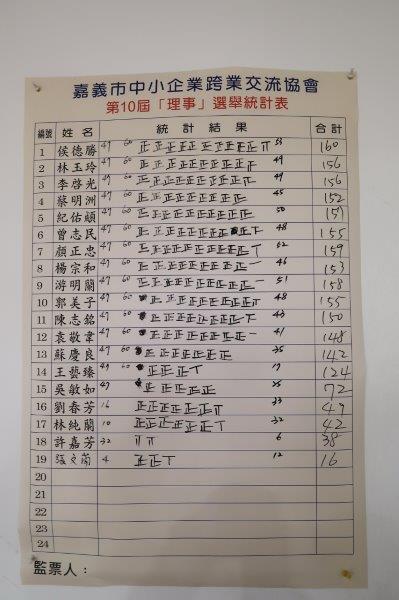 嘉義市中小企業跨業交流協會
第10屆「理事」選舉統計表
編號 姓名 統計結果 合計
1 侯德勝 47 60 正正正正正正正正正正丅 53 160
2 林玉玲 47 60 正正正正正正正正正 49 156
3 李啓光 47 60 正正正正正正正正正 49 156
4 蔡明洲 47 60 正正正正正正正正正 45 152
5 紀佑頡 47 60 正正正正正正正正正正 50 157
6 曾志民 47 60 正正正正正正正正正下 48 155
7 顏正忠 47 60 正正正正正正正正正正丅 52 159
8 楊宗和 47 60 正正正正正正正正正一 46 153
9 游明蘭 47 60 正正正正正正正正正正一 51 158
10 郭美子 47 60 正正正正正正正正正 48 155
11 陳志銘 47 60 正正正正正正正正下 43 150
12 袁敬韋 47 60 正正正正正正正正一 41 148
13 蘇慶良 47 60 正正正正正正正 35 142
14 王藝臻 47 60 正正正丅 17 124
15 吳敏如 47 正正正正正 25 72
16 劉春芳 16 正正正正正正 33 49
17 林純蘭 10 正正正正正正丅 32 42
18 許嘉芳 32 6 38
19 張文蘭 4 正正丅 12 16
20
21
22
23
24
監票人：